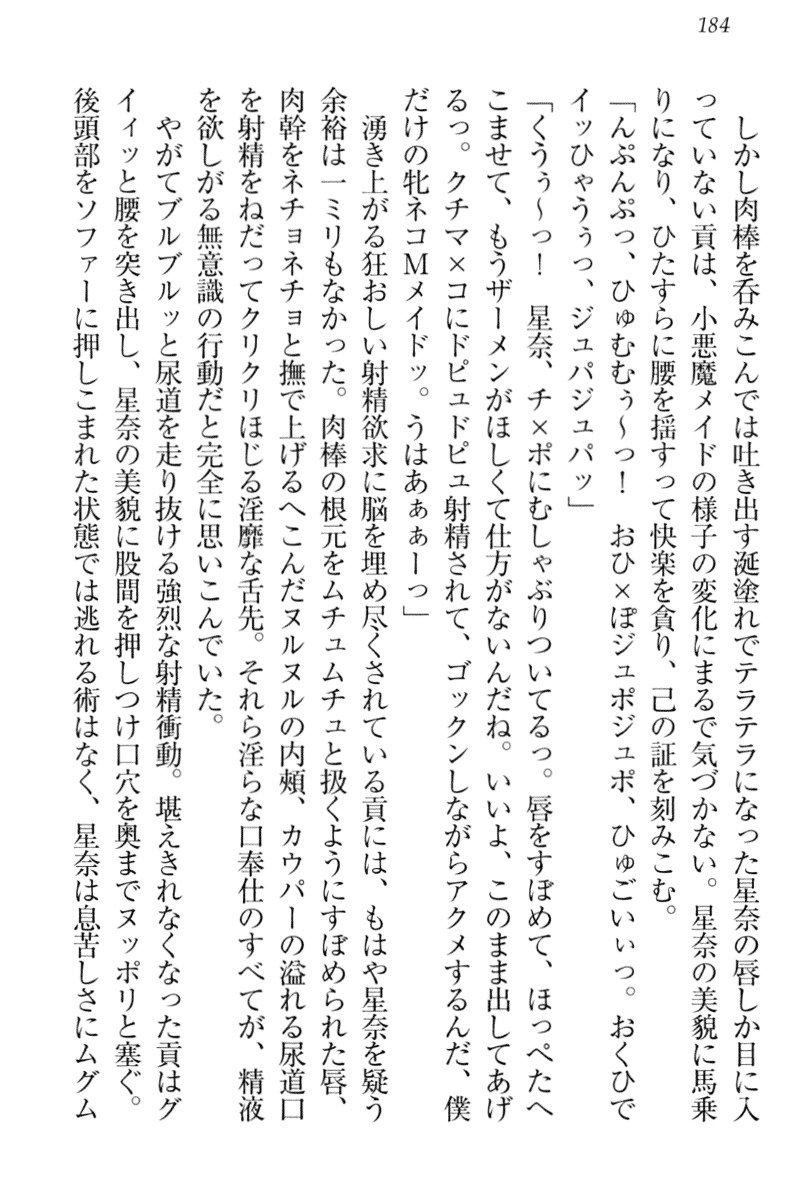 184
しかし肉棒を呑みこんでは吐き出す涎塗れでテラテラになった星奈の唇しか目に入
っていない貢は、小悪魔メイドの様子の変化にまるで気づかない。星奈の美貌に馬乗
りになり、ひたすらに腰を揺すって快楽を貪り、己の証を刻みこむ。
「んぷんぷっ、ひゅむむぅ～っ！　おひ×ぽジュポジュポ、ひゅごいぃっ。おくひで
イッひゃうぅっ、ジュパジュパッ」
「くうぅ～っ！　星奈、チ×ポにむしゃぶりついてるっ。唇をすぼめて、ほっぺたへ
こませて、もうザーメンがほしくて仕方がないんだね。いいよ、このまま出してあげ
るっ。クチマ×コにドピュドピュ射精されて、ゴックンしながらアクメするんだ、僕
だけの牝ネコＭメイドッ。うはあぁぁーっ」
湧き上がる狂おしい射精欲求に脳を埋め尽くされている貢には、もはや星奈を疑う
余裕は一ミリもなかった。肉棒の根元をムチュムチュと扱くようにすぼめられた唇、
肉幹をネチョネチョと撫で上げるへこんだヌルヌルの内頬、カウパーの溢れる尿道口
を射精をねだってクリクリほじる淫靡な舌先。それら淫らな口奉仕のすべてが、精液
を欲しがる無意識の行動だと完全に思いこんでいた。
やがてブルブルッと尿道を走り抜ける強烈な射精衝動。堪えきれなくなった貢はグ
イィッと腰を突き出し、星奈の美貌に股間を押しつけ口穴を奥までヌッポリと塞ぐ。
後頭部をソファーに押しこまれた状態では逃れる術はなく、星奈は息苦しさにムグム